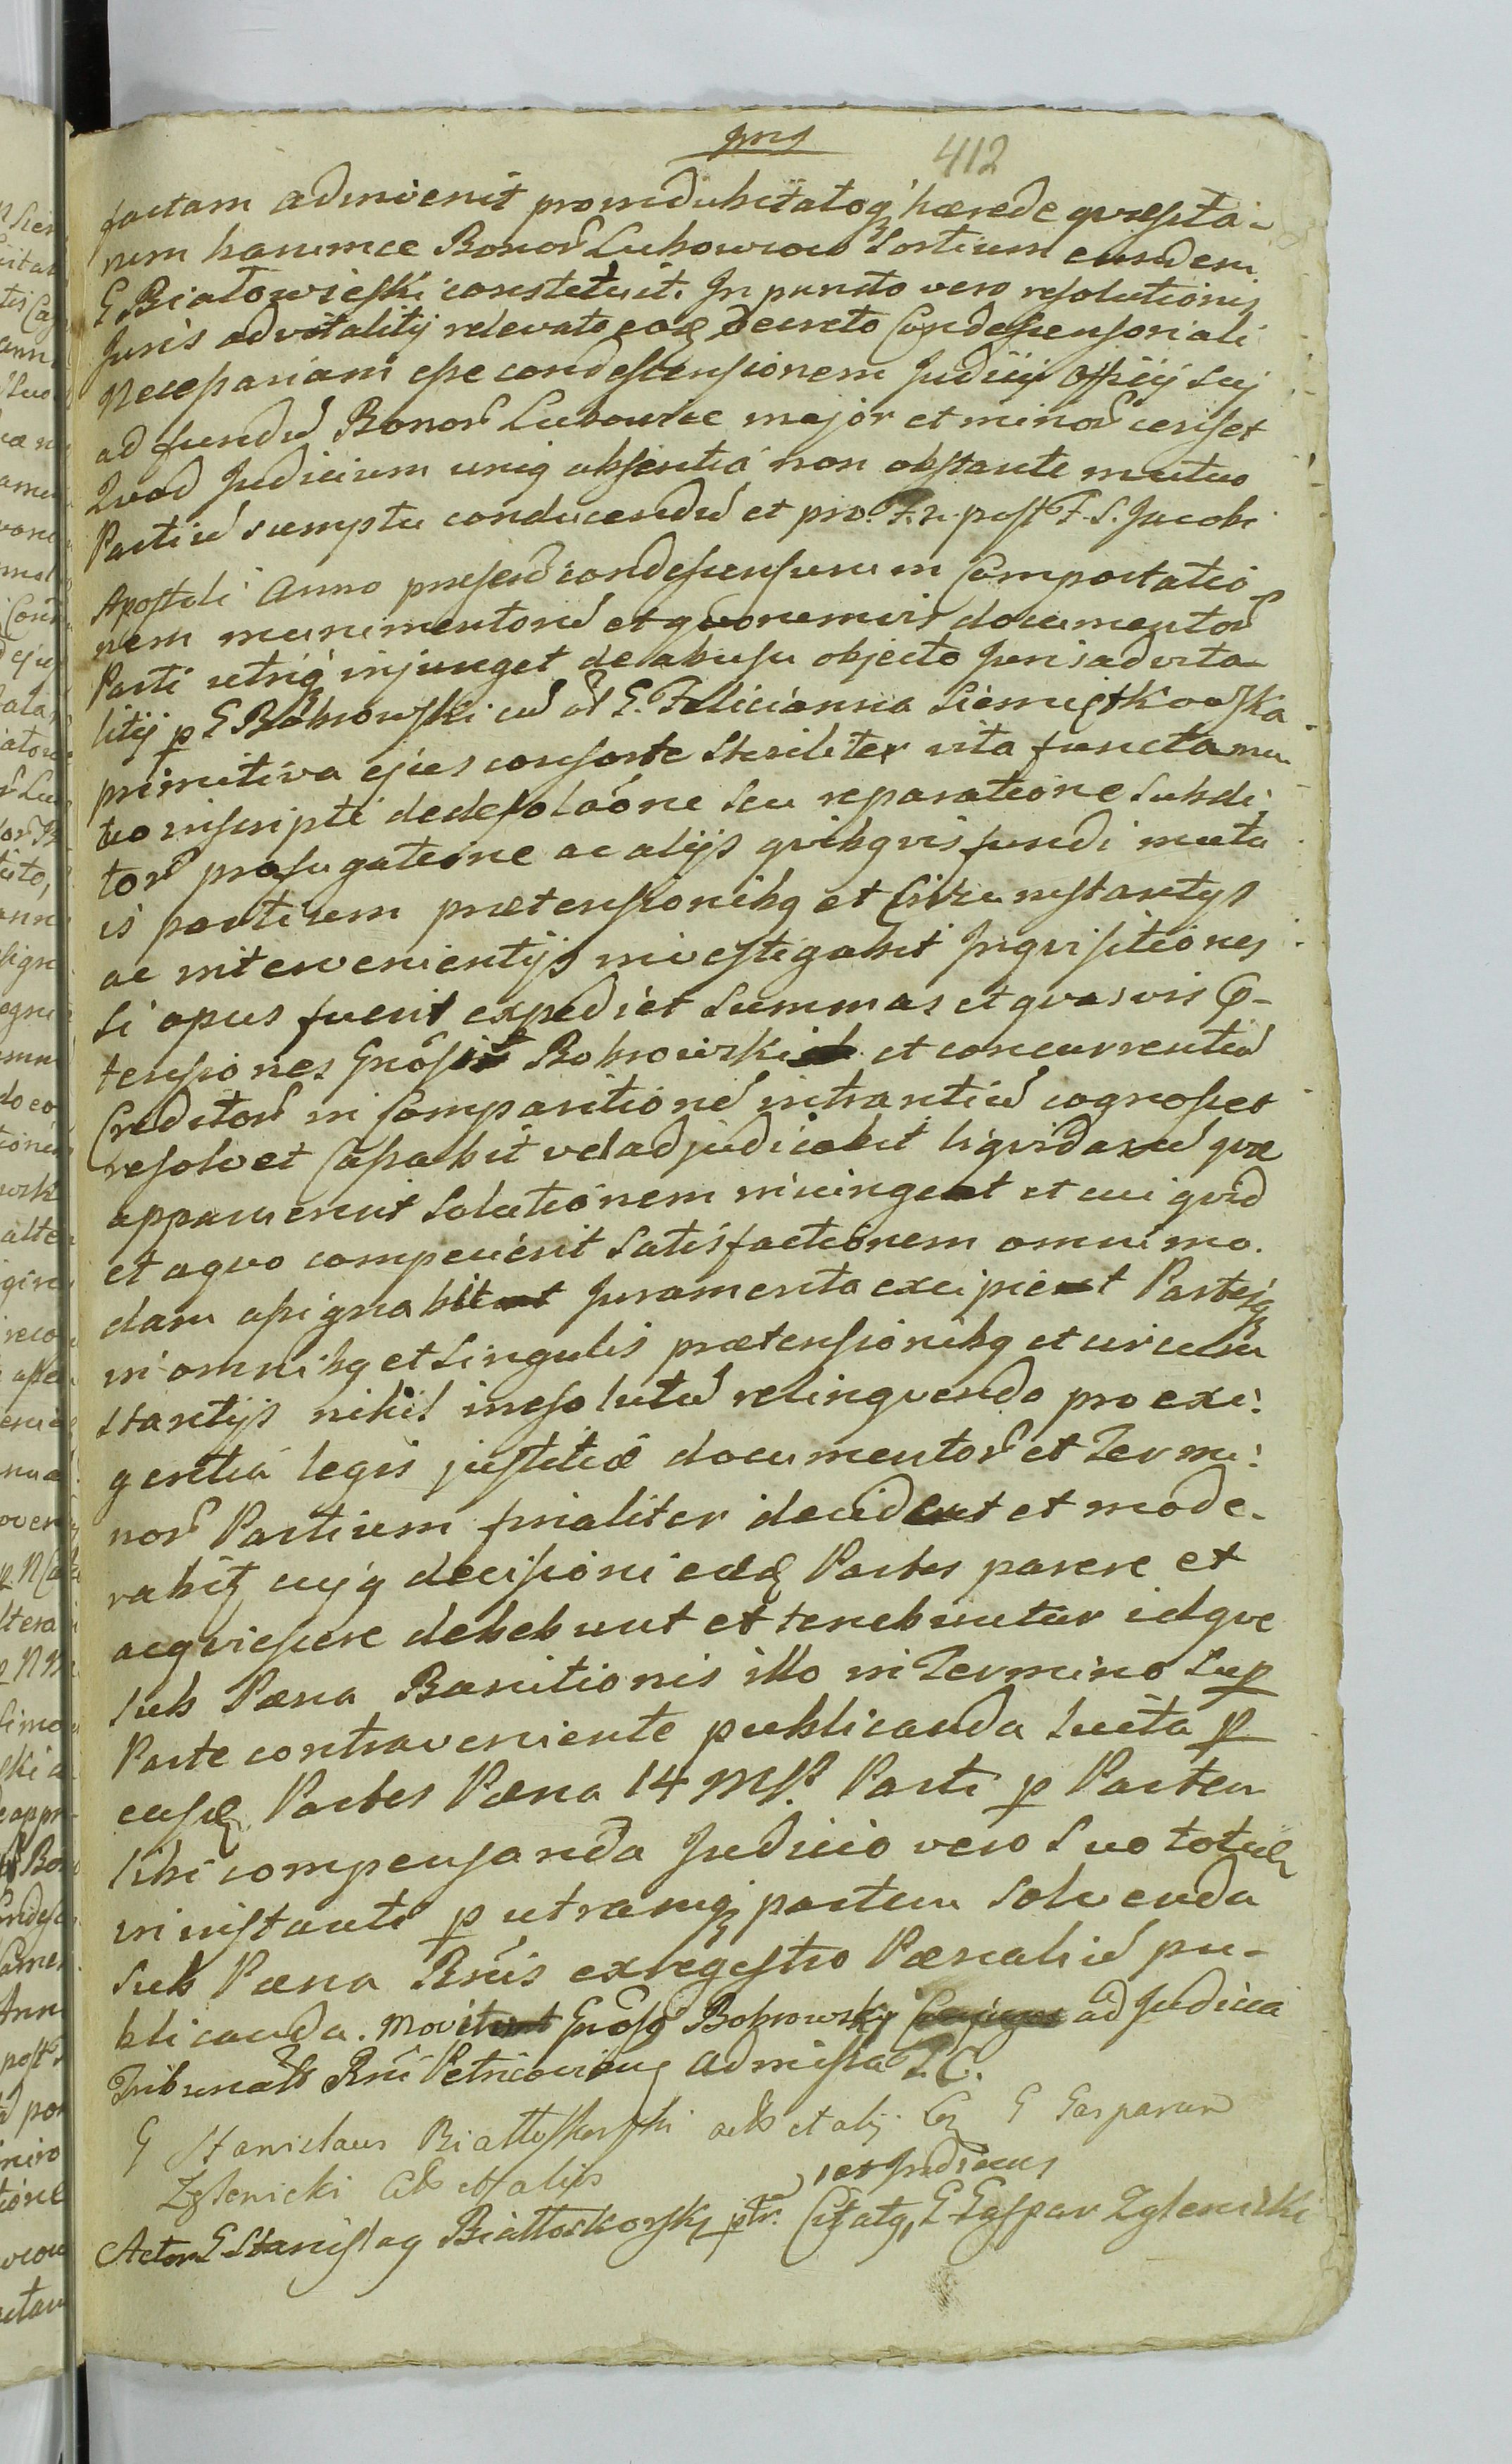 412
factam advnienit pro indubitatoq hærede
num hancmce Bonor Luhowiow Sortium eundem
G Białowieski constetuit. In puncto vero resolutionis
Juris advitalitij relevato eoq Decreto Condescensoriali
Necessariam esse condescensionem Judicij Officij Sui
ad fundu Bonor Luhowice major et minor censet
Quod Judicium uniq absentia non obstante mutuo
Partiu sumptu conducendu et pro F. 2. post F. S. Jacobi
Apostoli Anno presen condescensurum Comportatio
nem munimentoru et quorumvis documentor
Parti utriq injunget de abusu objecto Juris advita
litij p G Bobrowski cu ol G. Felicianna Siemiętkowska
primitiva ejus consorte Steriliter vita functa mu
tuo inscripti de desolaone seu reparatione Subdi
tor profugatione ac alijs quibqvis fundi mutu
is partium prætensionibq et Circumstantijs
ac intervenientijs investigabit Inquisitiones
Si opus fuerit expediet Summas et quasvis P-
tensiones Gnosi Bobrowski et concurrentiu
Creditor in Comparitione intrantiu cognoscet
resolvet Cassabit vel adjudicabit liquidaru quæ
apparuerint Solutionem injunget et cui quid
et a quo competierit Satisfactionem omnimo.
dam assignabit Juramenta excipiet Partesq
in omnibq et Singulis prætensionibq et circum
stantijs nihil inresolutu relinquendo pro exi:
gentia legis justitiæ documentor et Termi:
nor Partium finaliter decidet et mode.
rabit cujq decisioni eæd Partes parere et
acquiescere debebunt et tenebuntur idque
Sub Pæna Banitionis illo in Termino Sup
Parte contraveniente publicanda lucita p
easd Partes Pæna 14 Mp. Parti p Partem
Sibi compensanda Judicio vero Suo totid
in instanti p utramq partem Solvenda
Sub Pæna Bnis ex regestro Pænaliu pu-
blicanda. Movit Gnosq Bobrowsky ad Judicia
Tribunals Rni Petricovien Admissa I. C.
G Stanislaus Białłoskorski actr et alij Cor G Gasparum
Zglenicki Ctt et alijs
ter Judicus
Actor G Stanislaq Białłoskorsky ptr. Citatq, G Gaspar Zglenicki